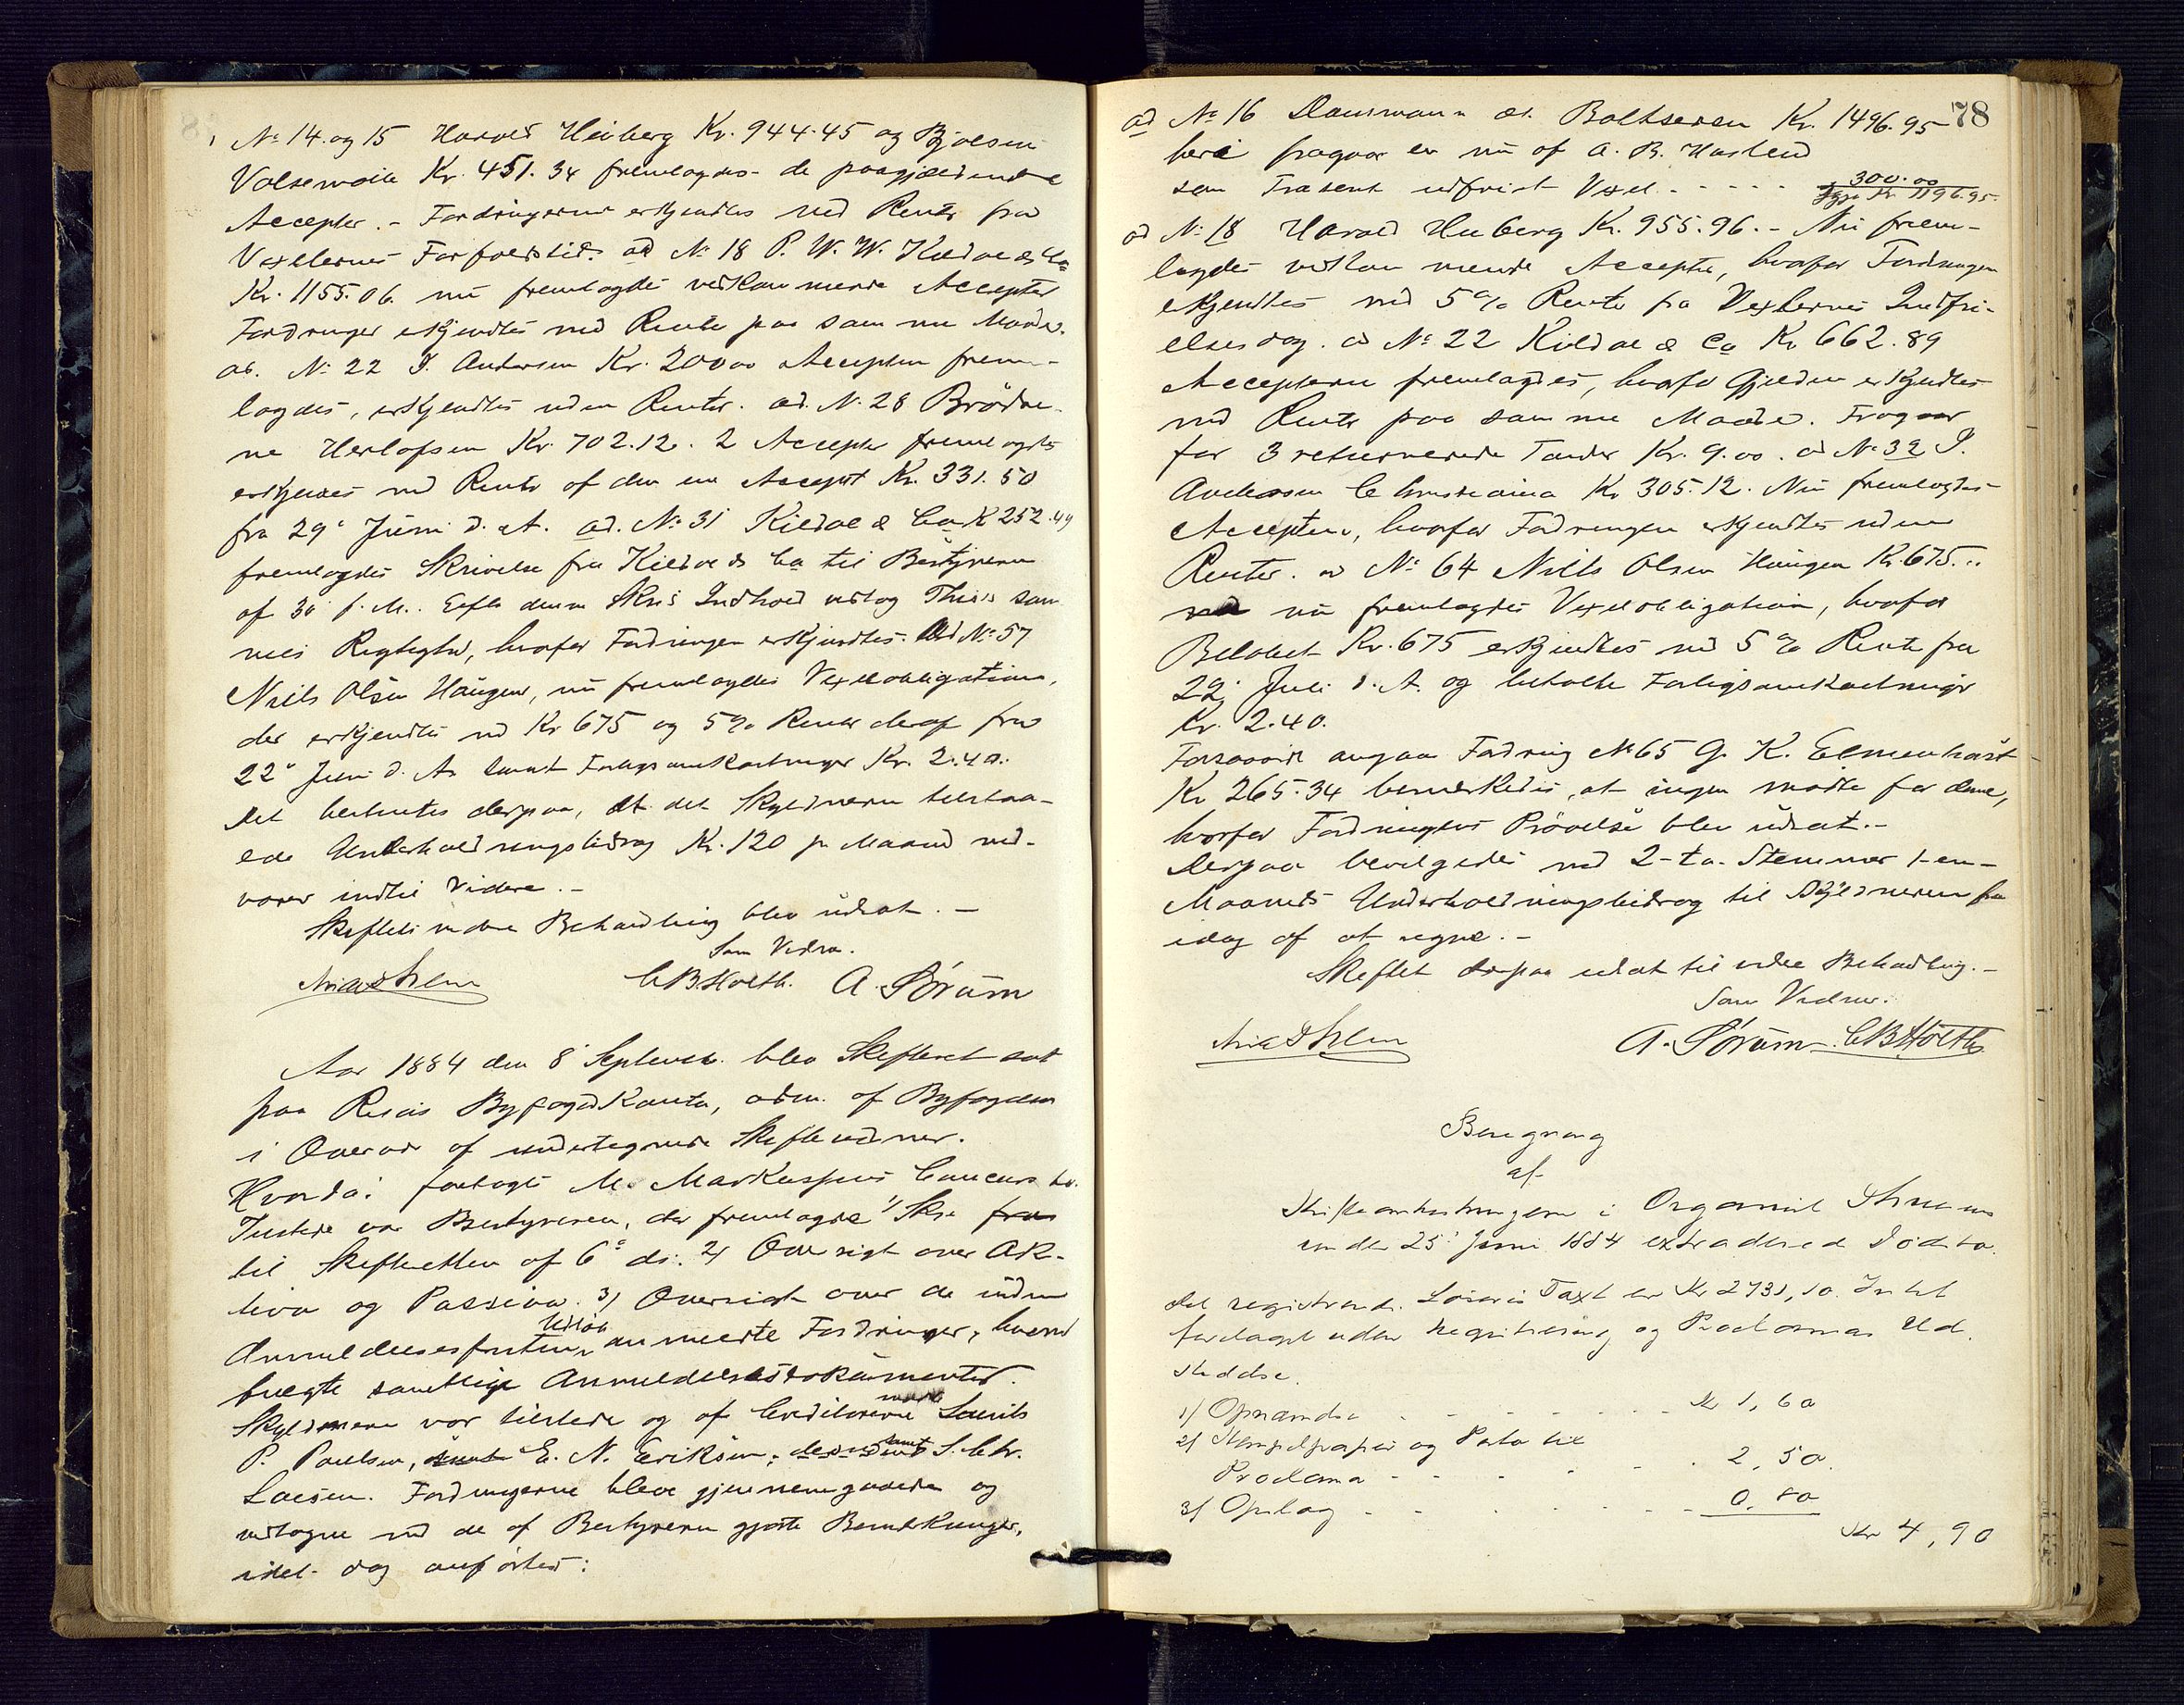 No 14. og 15 Harald Heiberg Kr. 944.45 og Bjølsen
Valsemølle Kr. 451.34 fremlagdes de paagjældende
Accepter. - Fordringerne erkjendtes med Renter fra
Vexlernes Forfaldstid. ad No 18 P. W. W. Kildal & Co
Kr. 1155.06. nu fremlagdes vedkommende Accepter
Fordringer erkjendtes med Renter paa samme Maade.
ad. No 22 J. Andersen Kr. 200.00 Accepten frem-
lagdes, erkjendtes uden Renter. ad. No 28 Brödre-
ne Herlofsen Kr. 702.12. 2 Accepter fremlagdes
erkjendes med Renter af den ene Accept Kr. 331.50
fra 29de Juni d. A. ad. No 31 Kildal & Co K 252.49
fremlagdes Skrivelse fra Kildal & Co til Bestyreren
af 30 f. M. Efter denne Skr's Indhold vedtog
Rigtighed, hvorfor Fordringen erkjendtes. Ad No 57
Niels Olsen Haugen, nu fremlagdes Vexelobligation,
der erkjendtes med Kr 675 og 5% Renter deraf fra
22de Juni d. A. samt Forligsomkostninger Kr. 2.40.
Det besluttedes derpaa, at det Skyldneren tilstaa-
ede Underholdningsbidrag Kr. 120 pr Maaned ved-
varer indtil Videre. -
Skiftets videre Behandling blev udsat. -
Som Vidner.
C B Holth. A. Sørum
Aar 1884 den 8 Septemb. blev Skifteret sat
paa Risørs Byfogedkontor, adm. af Byfogden
i Overvær af undertegnede Skiftevidner.
Hvorda: foretoges M. Markussens Concursbo.
Tilstede var Bestyreren, der fremlagde 1/ Skr. fra
til Skifteretten af 6te ds: 2/ Oversigt over Ak-
tiva og Passiva. 3/ Oversigt over de inden
Anmeldelsesfristens Udløb anmeldte Fordringer, hvormed
fulgte samtlige Anmeldelsesdokumenter.
Skyldneren var tilstede og af Creditorerne mødte Laurits
P. Paulsen, samt E. N. Eriksen, samt S. Chr.
Larsen. Fordringerne bleve gjennemgaaede og
vedtagne med de af Bestyreren gjorte Bemærkninger,
idet dog anførtes:
78
ad No 16 Dansmann & Baltsersen Kr. 1496.95
heri fragaar en nu af A. B. Hasleud
som Trasent indfriet Vexel - - - - - 300.00
Igjen Kr 1196.95.
ad No 18 Harald Heiberg Kr. 955.96. - Nu frem-
lagdes vedkommende Accepter, hvorfor Fordringen
erkjendtes med 5% Renter fra Vexlernes Indfri-
elsesdag. ad No 22 Kildal & Co Kr 662.89
Accepterne fremlagdes, hvorfor Gjælden erkjendtes
med Renter paa samme Maade. Fragaar
for 3 returnerede Tønder Kr. 9.00. ad No 32 J.
Andersen Christiania Kr 305.12. Nu fremlagdes
Accepten, hvorfor Fordringen erkjendtes uden
Renter. ad No 64 Niels Olsen Haugen Kr. 675..
nu fremlagdes Vexelobligation, hvorfor
Beløbet Kr. 675 erkjendtes med 5% Rente fra
22de Juli d. A. og betalte Forligsomkostninger
Kr. 2.40.
Forsaavidt angaar Fordring No 65 G. K. Elmenhorst
Kr 265.34 bemærkedes, at ingen mødte for denne,
hvorfor Fordringens Prövelse blev udsat. -
Derpaa bevilgedes med 2-to- Stemmer 1-en-
Maaneds Underholdningsbidrag til Skyldneren fra
idag af at regne. -
Skiftet derpaa udsat til videre Behandling. -
Som Vidner.
A. Sørum C B Holth
Beregning
af
Skifteomkostningerne i Organist
under 25de Juni 1884 extraderede Dødsbo.
Det registrerede Løsøres Taxt er Kr 2731,10. Intet
foretaget uden Registrering og Proclamas Ud-
stedelse.
1/ Opnævnelse - - - - - Kr 1,60
2/ Stempelpapir og Porto til
Proclama - - - - 2,50.
3/ Opslag - - - - - 0,80
Kr 4,90